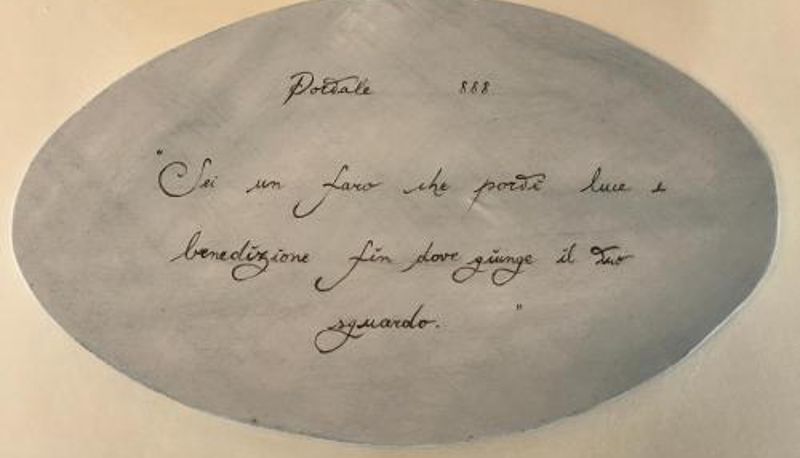 Portale 888
"Sei un faro che porti luce e
benedizione fin dove giunge il tuo
sguardo. "